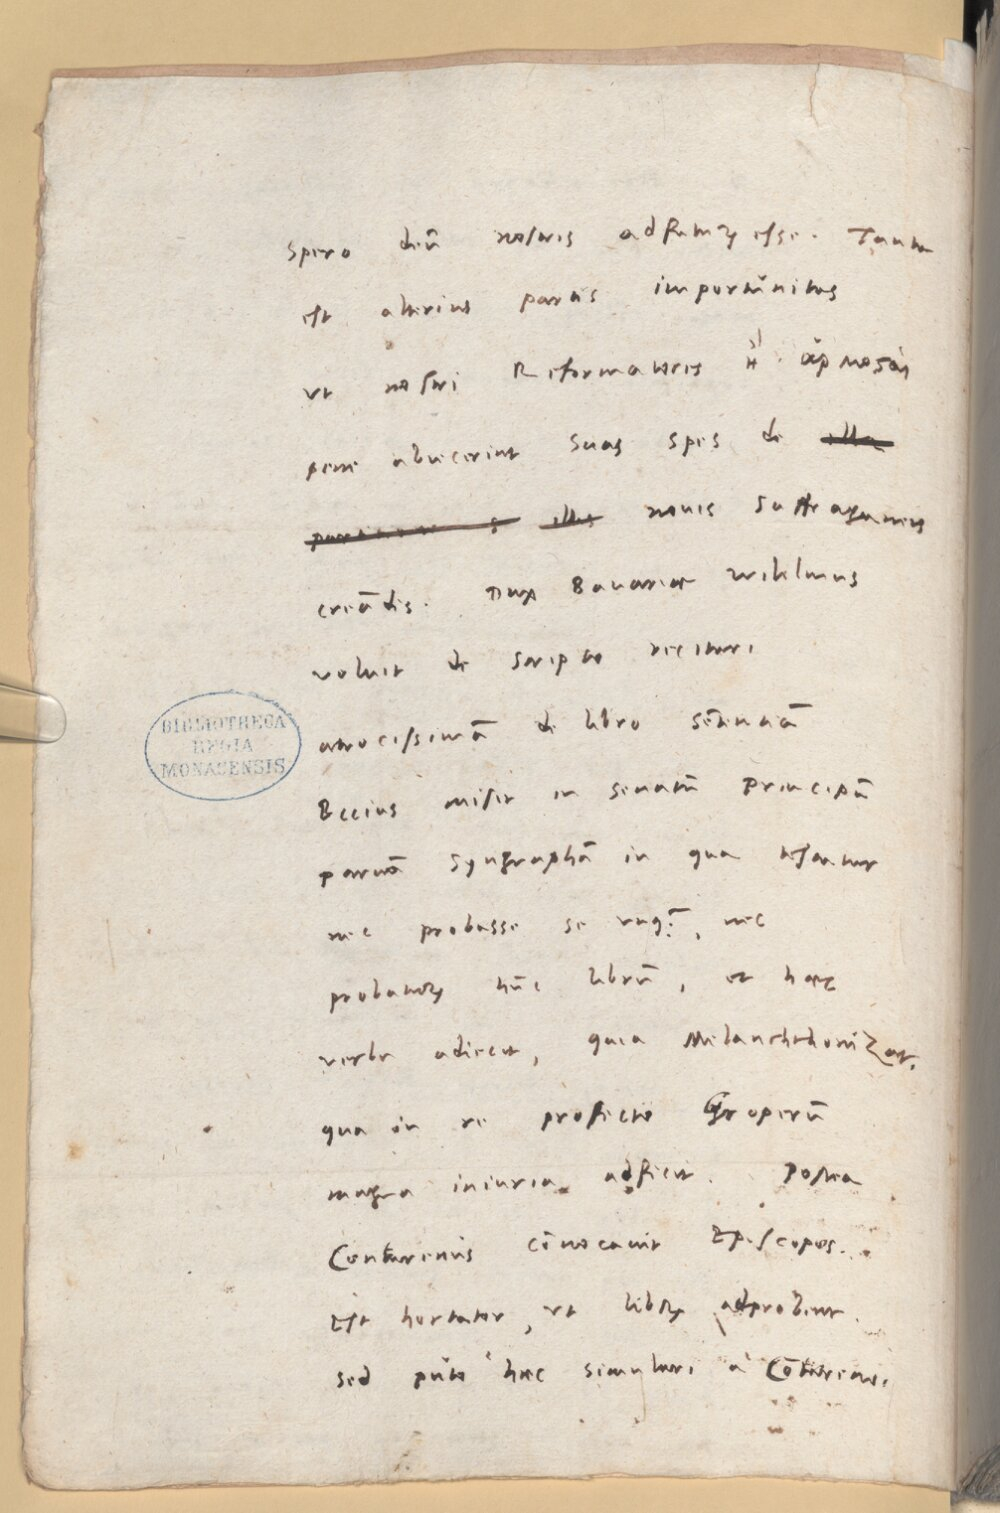 spero deū nostris adfuturū esse. Tanta
est alterius partis importūnitas
vt nostri Reformatores
pene abiecerint suas spes de illa
illis nouis suffraganeis
creādis. Dux Bauariae Wilelmus
voluit de scripto recitari
atrocissimā de libro sētentiā
Eccius misit in senatū Principū
paruā syngraphā in qua testatur
nec probasse se vnq̄, nec
probaturū hūc librū, et haec
verba adiecit, quia Melanchthonizat.
qua in re profecto Groperū
magna iniuria adficit. Postea
Contarenus cōuocauit Episcopos.
Est hortator, vt librū adprobent.
sed puto haec simulari a Cōtareno.
BIBLIOTHECA
REGIA
MONACENSIS